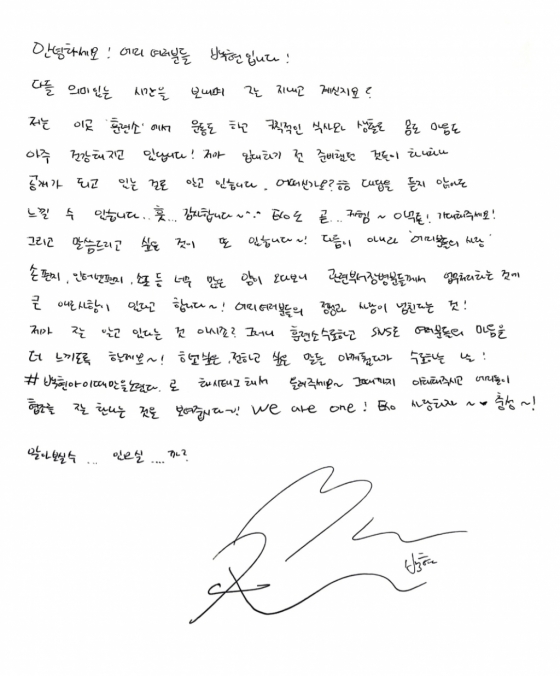 안녕하세요! 에리 여러분들 백현입니다!
다들 의미있는 시간을 보내며 잘 지내고 계신지요?
저는 이곳 '훈련소'에서 운동도 하고 규칙적인 식사와 생활로 몸도 마음도
아주 건강해지고 있습니다! 제가 입대하기 전 준비했던 것들이 하나하나
공개가 되고 있는 걸로 알고 있습니다. 어떠신가요?ㅎㅎ 대답을 듣지 않아도
느낄 수 있습니다..훗...감사합니다~^^ Exo도 곧... 커밍~아쑨! 기대해주세요!
그리고 말씀드리고 싶은 것이 또 있습니다~! 다름이 아니라 '에리분들의 사랑'
손편지, 인터넷편지, 소포 등 너무 많은 양이 오다보니 관련부서장병분들께서 업무처리하는 것에
큰 애로사항이 있다고 합니다~! 에리여러분들의 정성과 사랑이 넘친다는 것!
제가 잘 알고 있다는 것 아시죠? 그러니 훈련소 수료하고 SNS로 여러분들의 마음을
더 느끼도록 할게요~! 하고싶은, 전하고 싶은 말들 아껴뒀다가 수료하는 날!
#백현아이때만을노렸다. 로 해시태그해서 들려주세요~ 그때까지 이해해주시고 에리들이
협조를 잘 한다는 것을 보여줍시다~! We are one! Exo 사랑하자~♥ 충성~!
알아보실수... 있으실....까?
백현